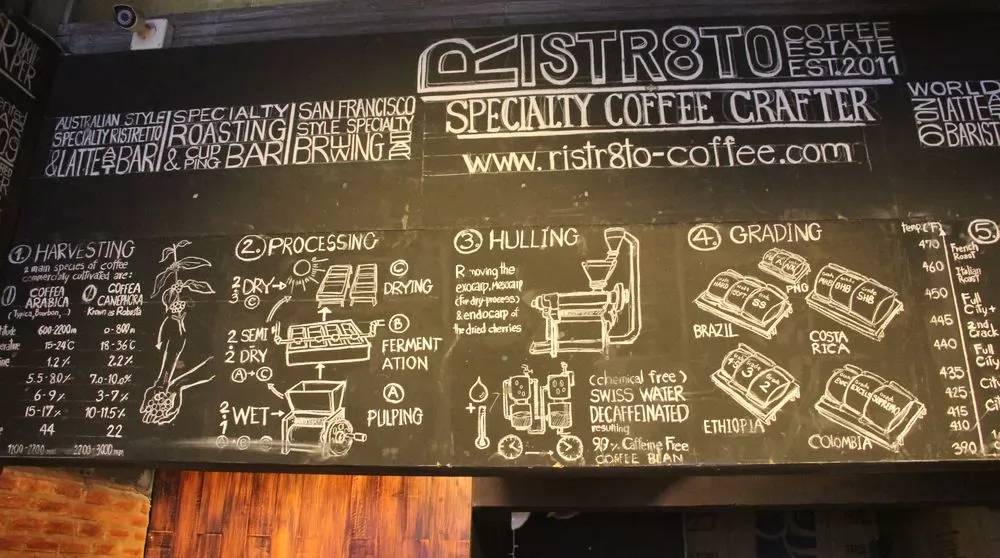 RISTR8TO
COFFEE
ESTATE
EST.2011
SPECIALTY COFFEE CRAFTER
www.ristr8to-coffee.com
AUSTRALIAN STYLE
SPECIALTY RISTRETTO
& LATTE ART BAR
SPECIALTY
ROASTING
& CUPPING BAR
SAN FRANCISCO
STYLE SPECIALTY
BREWING BAR
WORLD
LATTE
BARIST
1 HARVESTING
2 main species of coffee
commercially cultivated are:
1 COFFEA
ARABICA
(Typica, Bourbon,..)
COFFEA
CANEPHORA
Known as Robusta
600-2200m 0-800m
15-24°C 18-36°C
1.2% 2.2%
5.5-8.0% 7.0-10.0%
6-9% 3-7%
15-17% 10-11.5%
44 22
2. PROCESSING
DRY
C
C
DRYING
2 SEMI
2 DRY
A→C
B
FERMENT
ATION
WET
A
PULPING
3. HULLING
Removing the
exocarp, Mesocarp
(for dry-process)
& endocarp of
the dried cherries
(chemical free)
SWISS WATER
DECAFFEINATED
resulting
99.9% Caffeine Free
COFFEE BEAN
4. GRADING
PNG
HARD
SOFT
SS
BRAZIL
GHB
SHB
COSTA
RICA
3
2
ETHIOPIA
EXCELSO
SUPREMO
COLOMBIA
5.
temp(°F)
470 French
Roast
460 Italian
Roast
450 Full
City+
445 2nd
Crack
440 Full
City
435
425
415
410
390